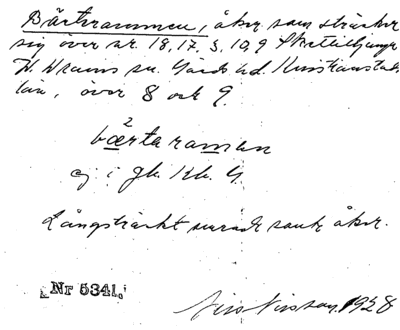 Bärtaramen, åker som sträcker
sig över nr. 18, 17, 3, 10, 9 Skättilljunga
V. Vrams sn. Gärds hd. Kristianstads
län, över 8 och 9.
2
bærtaraman
ej i jb. Kb. G.
Långsträckt åker.
Nr 5341.
Nils Nilsson, 1928